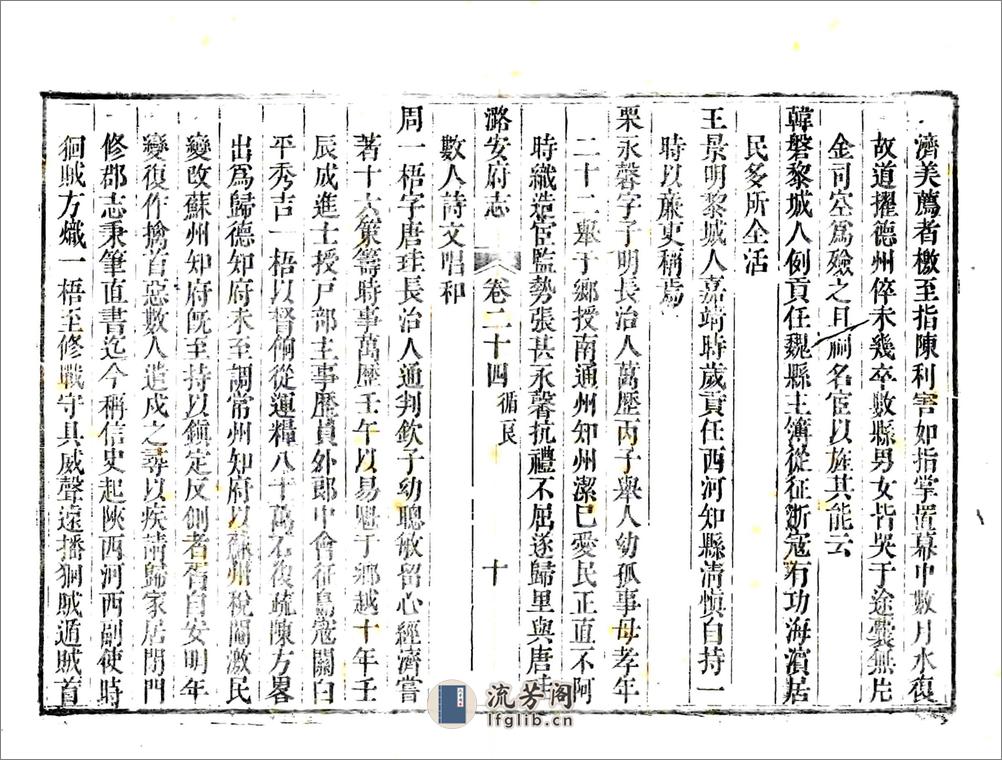 濟美薦者檄至指陳利害如指掌置幕中數月水復
故道擢德州倅未幾卒數縣男女皆哭于途囊無片
金司空為殮之且祠名宦以旌其能云
韓磐黎城人例貢任魏縣主簿從征浙寇有功海濱居
民多所全活
王景明黎城人嘉靖時歲貢任西河知縣清慎自持一
時以廉吏稱焉
栗永馨字子明長治人萬歷丙子舉人幼孤事母孝年
二十二舉于鄉授南通州知州潔已愛民正直不阿
時織造宦監勢張甚永馨抗禮不屈遂歸里與唐
數人詩文唱和
潞安府志 卷二十四 循良 十
周一梧字唐珪長治人通判欽子幼聰敏留心經濟嘗
著十六策籌時事萬歷壬午以易魁于鄉越十年壬
辰成進士授戸部主事歷員外郎中會征島寇關白
平秀吉一梧以督餉從運糧八十萬石復疏陳方畧
出為歸德知府未至調常州知府以蘇州稅閹激民
變改蘇州知府既至持以鎮定反側者胥自安明年
變復作擒首惡數人遣戍之尋以疾請歸家居閉門
修郡志秉筆直書迄今稱信史起陜西河西副使時
狪賊方熾一梧至修戰守具威聲遠播狪賊遁賊首
流芳阁
lfglib.cn